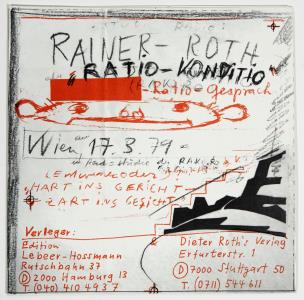 RAINER-ROTH
"RATIO-KONDITIO"
Ratio-Gespräch
Wien 17.3.79
HART INS GERICHT
ZART INS GESICHT
Verleger:
Edition
Lebeer-Hossmann
Rutschbahn 37
D 2000 Hamburg 13
T. (040) 410 4937
Dieter Roth's Verlag
Erfurterstr. 1
D 7000 Stuttgart 50
T. (0711) 544611